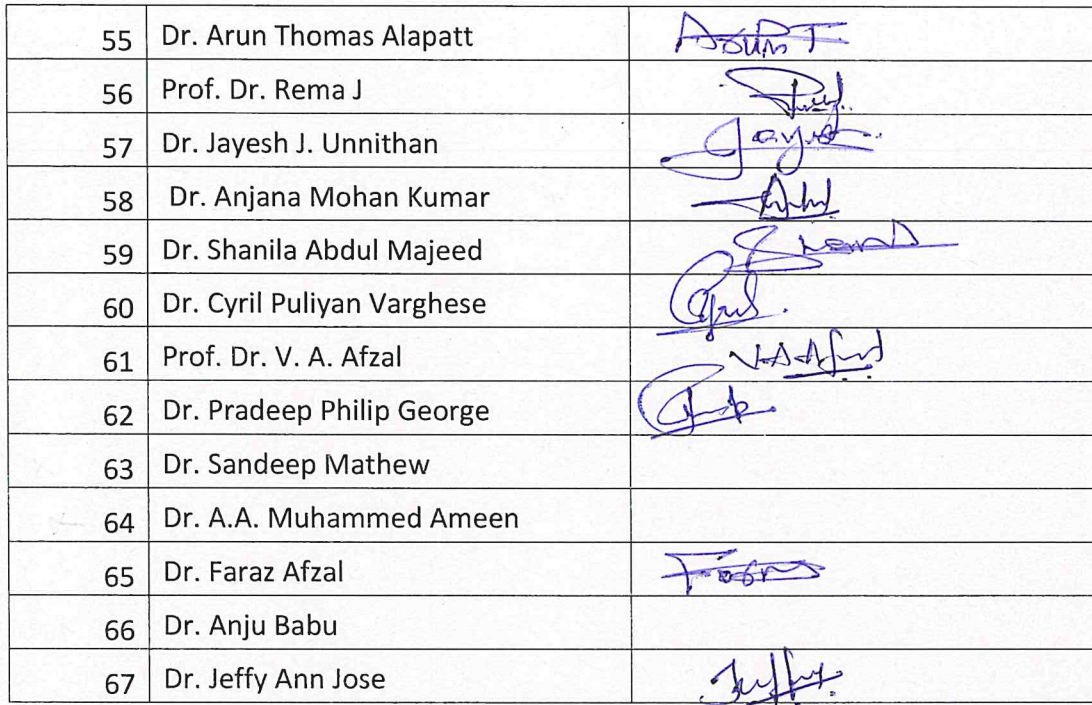 55 Dr. Arun Thomas Alapatt
56 Prof. Dr. Rema J
57 Dr. Jayesh J. Unnithan
58 Dr. Anjana Mohan Kumar
59 Dr. Shanila Abdul Majeed
60 Dr. Cyril Puliyan Varghese
61 Prof. Dr. V. A. Afzal V.A Afzal
62 Dr. Pradeep Philip George
63 Dr. Sandeep Mathew
64 Dr. A.A. Muhammed Ameen
65 Dr. Faraz Afzal
66 Dr. Anju Babu
67 Dr. Jeffy Ann Jose Jeffy